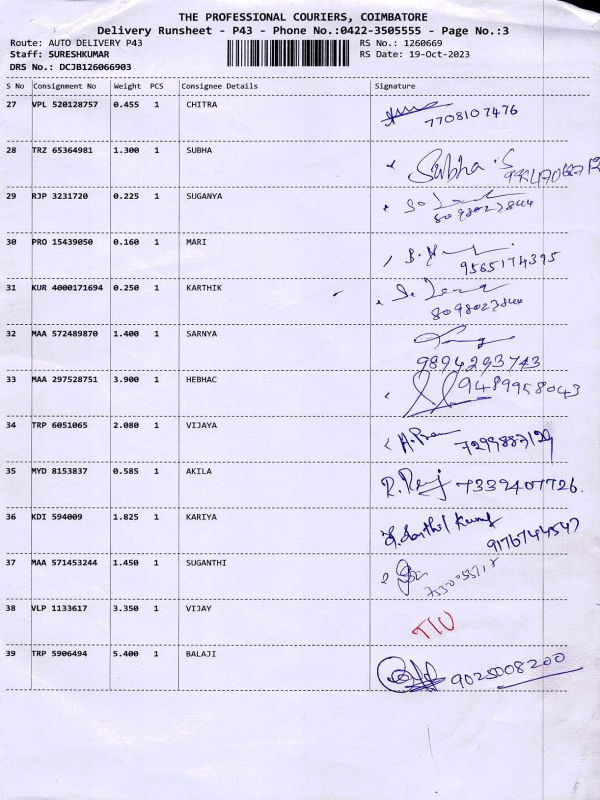 THE PROFESSIONAL COURIERS, COIMBATORE
Delivery Runsheet - P43 - Phone No.:0422-3505555 - Page No.:3
Route: AUTO DELIVERY P43 RS No.: 1260669
Staff: SURESHKUMAR RS Date: 19-Oct-2023
DRS No.: DCJB126066903
S No Consignment No Weight PCS Consignee Details Signature
27 VPL 520128757 0.455 1 CHITRA
7708107476
28 TRZ 65364981 1.300 1 SUBHA Subha .S
29 RJP 3231720 0.225 1 SUGANYA
8098023844
30 PRO 15439050 0.160 1 MARI
9565174395
31 KUR 4000171694 0.250 1 KARTHIK
8098023844
32 MAA 572489870 1.400 1 SARNYA
9894293743
33 MAA 297528751 3.900 1 HEBHAC 9489958043
34 TRP 6051065 2.080 1 VIJAYA
35 MYD 8153837 0.585 1 AKILA R.Raj 7339407726.
36 KDI 594009 1.825 1 KARIYA
9176744547
37 MAA 571453244 1.450 1 SUGANTHI
38 VLP 1133617 3.350 1 VIJAY
39 TRP 5906494 5.400 1 BALAJI 9025008200